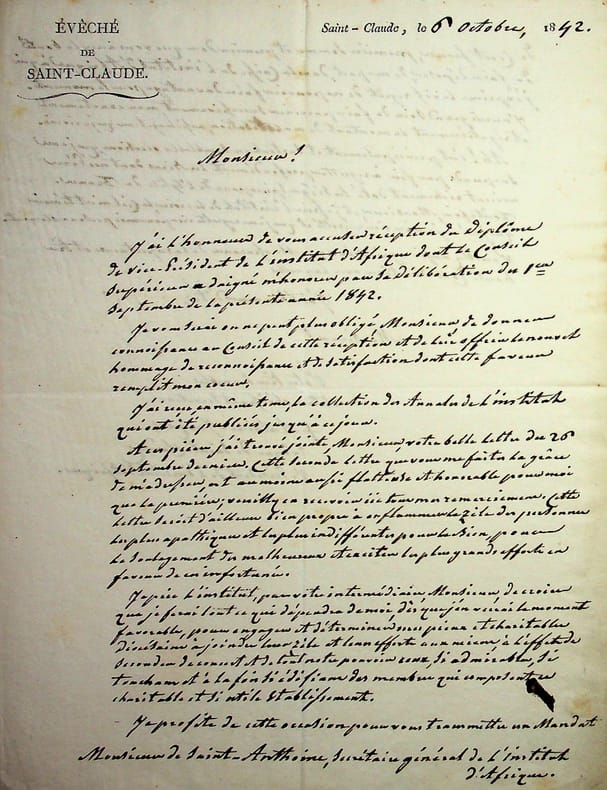 ÉVÊCHÉ
DE
SAINT-CLAUDE.
Saint-Claude, le 6 Octobre, 1842.
Monsieur!
J'ai l'honneur de vous accuser réception du Diplôme
de vice-Président de L'institut d'Afrique dont le Conseil
Supérieur a daigné m'honorer par sa Délibération du 1er
Septembre de la présente année 1842.
Je vous serai on ne peut plus obligé Monsieur de donner
connoissance au Conseil de cette réception et de lui offrir le nouvel
hommage de reconnoissance et de satisfaction dont cette faveur
remplit mon coeur.
J'ai reçu en même tems, la collection des Annales de L'institut
qui ont été publiés jusqu'à ce jour.
A ces pièces j'ai trouvé jointe, Monsieur, votre belle lettre du 26
Septembre dernier. Cette seconde lettre que vous me faites la grâce
de m'adresser, est au moins aussi flatteuse et honorable pour moi
que la première, veuillez en recevoir ici tous mes remerciemens. Cette
lettre seroit d'ailleurs bien propre à enflammer le zèle des personnes
les plus apathiques et les plus indifférentes pour le bien, pour
le soulagement des malheureux et exciter les plus grands efforts en
faveur de ces infortunés.
Je prie L'institut, par votre intermédiaire Monsieur, de croire
que je ferai tout ce qui dépendra de moi dès que j'en verrai le moment
favorable, pour engager et déterminer nos pieux et charitables
Diocésains à joindre leur zèle et leurs efforts aux miens, à l'effet de
Seconder de concert et de tout notre pouvoir ceux, si admirables, si
touchans et à la fois si édifians des membres qui composent ce
charitable et si utile Etablissement.
Je profite de cette occasion pour vous transmettre un Mandat
Monsieur de Saint-Anthoine, Secrétaire général de L'institut
d'Afrique.